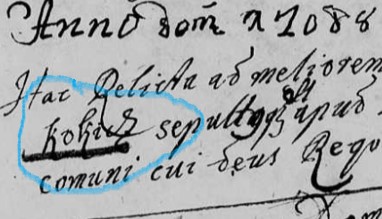 Anno dom̃ 1688
Hac Relicta ad meliorem
sepultus est apud
comuni cui deus Requ